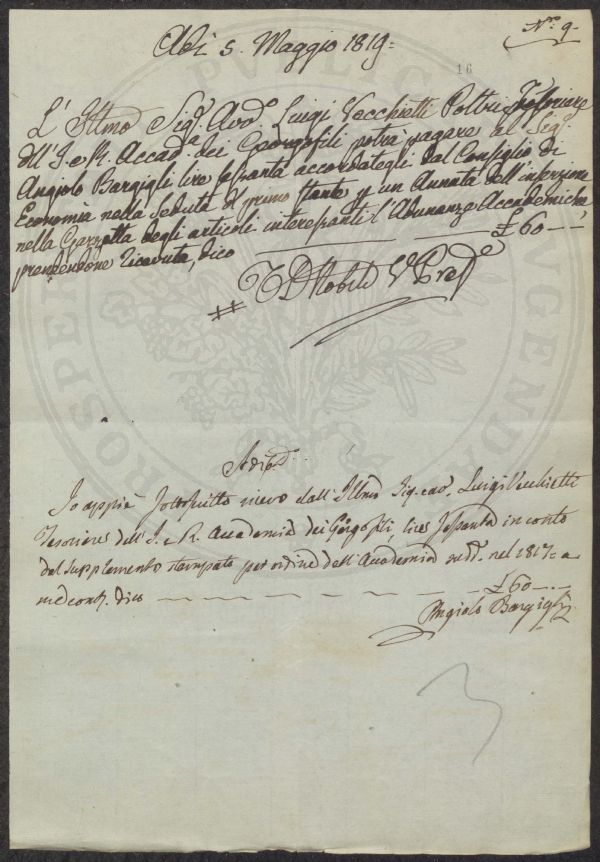 Nro. 9.
Adi 5. Maggio 1819=
16
L' Illmo Sigr. Avvo Luigi Vecchietti Poltri Tesoriere
dll' I. e R. Accada. dei Georgofili potrà pagare al Sigr.
Angiolo Bargigli lire sessanta accordategli dal Consiglio di
Economia nella Seduta del primo stante p un Annata dell' inserzione
nella Gazzetta degli articoli interessanti l'Adunanza Accademiche
prendendone Ricevuta, dico £ 60 —
Prede
Adi do
Io appiè sottoscritto ricevo dall' Illmo Sig. cav. Luigi Vecchietti
Tesoriere dell' I. e R. Accademia dei Georgofili, lire sessanta in conto
del supplemento stampato per ordine dell' Accademia nel 1817= a
dico £ 60 —
Angiolo Bargigli
PROSPERITATI PUBLICAE AUGENDAE